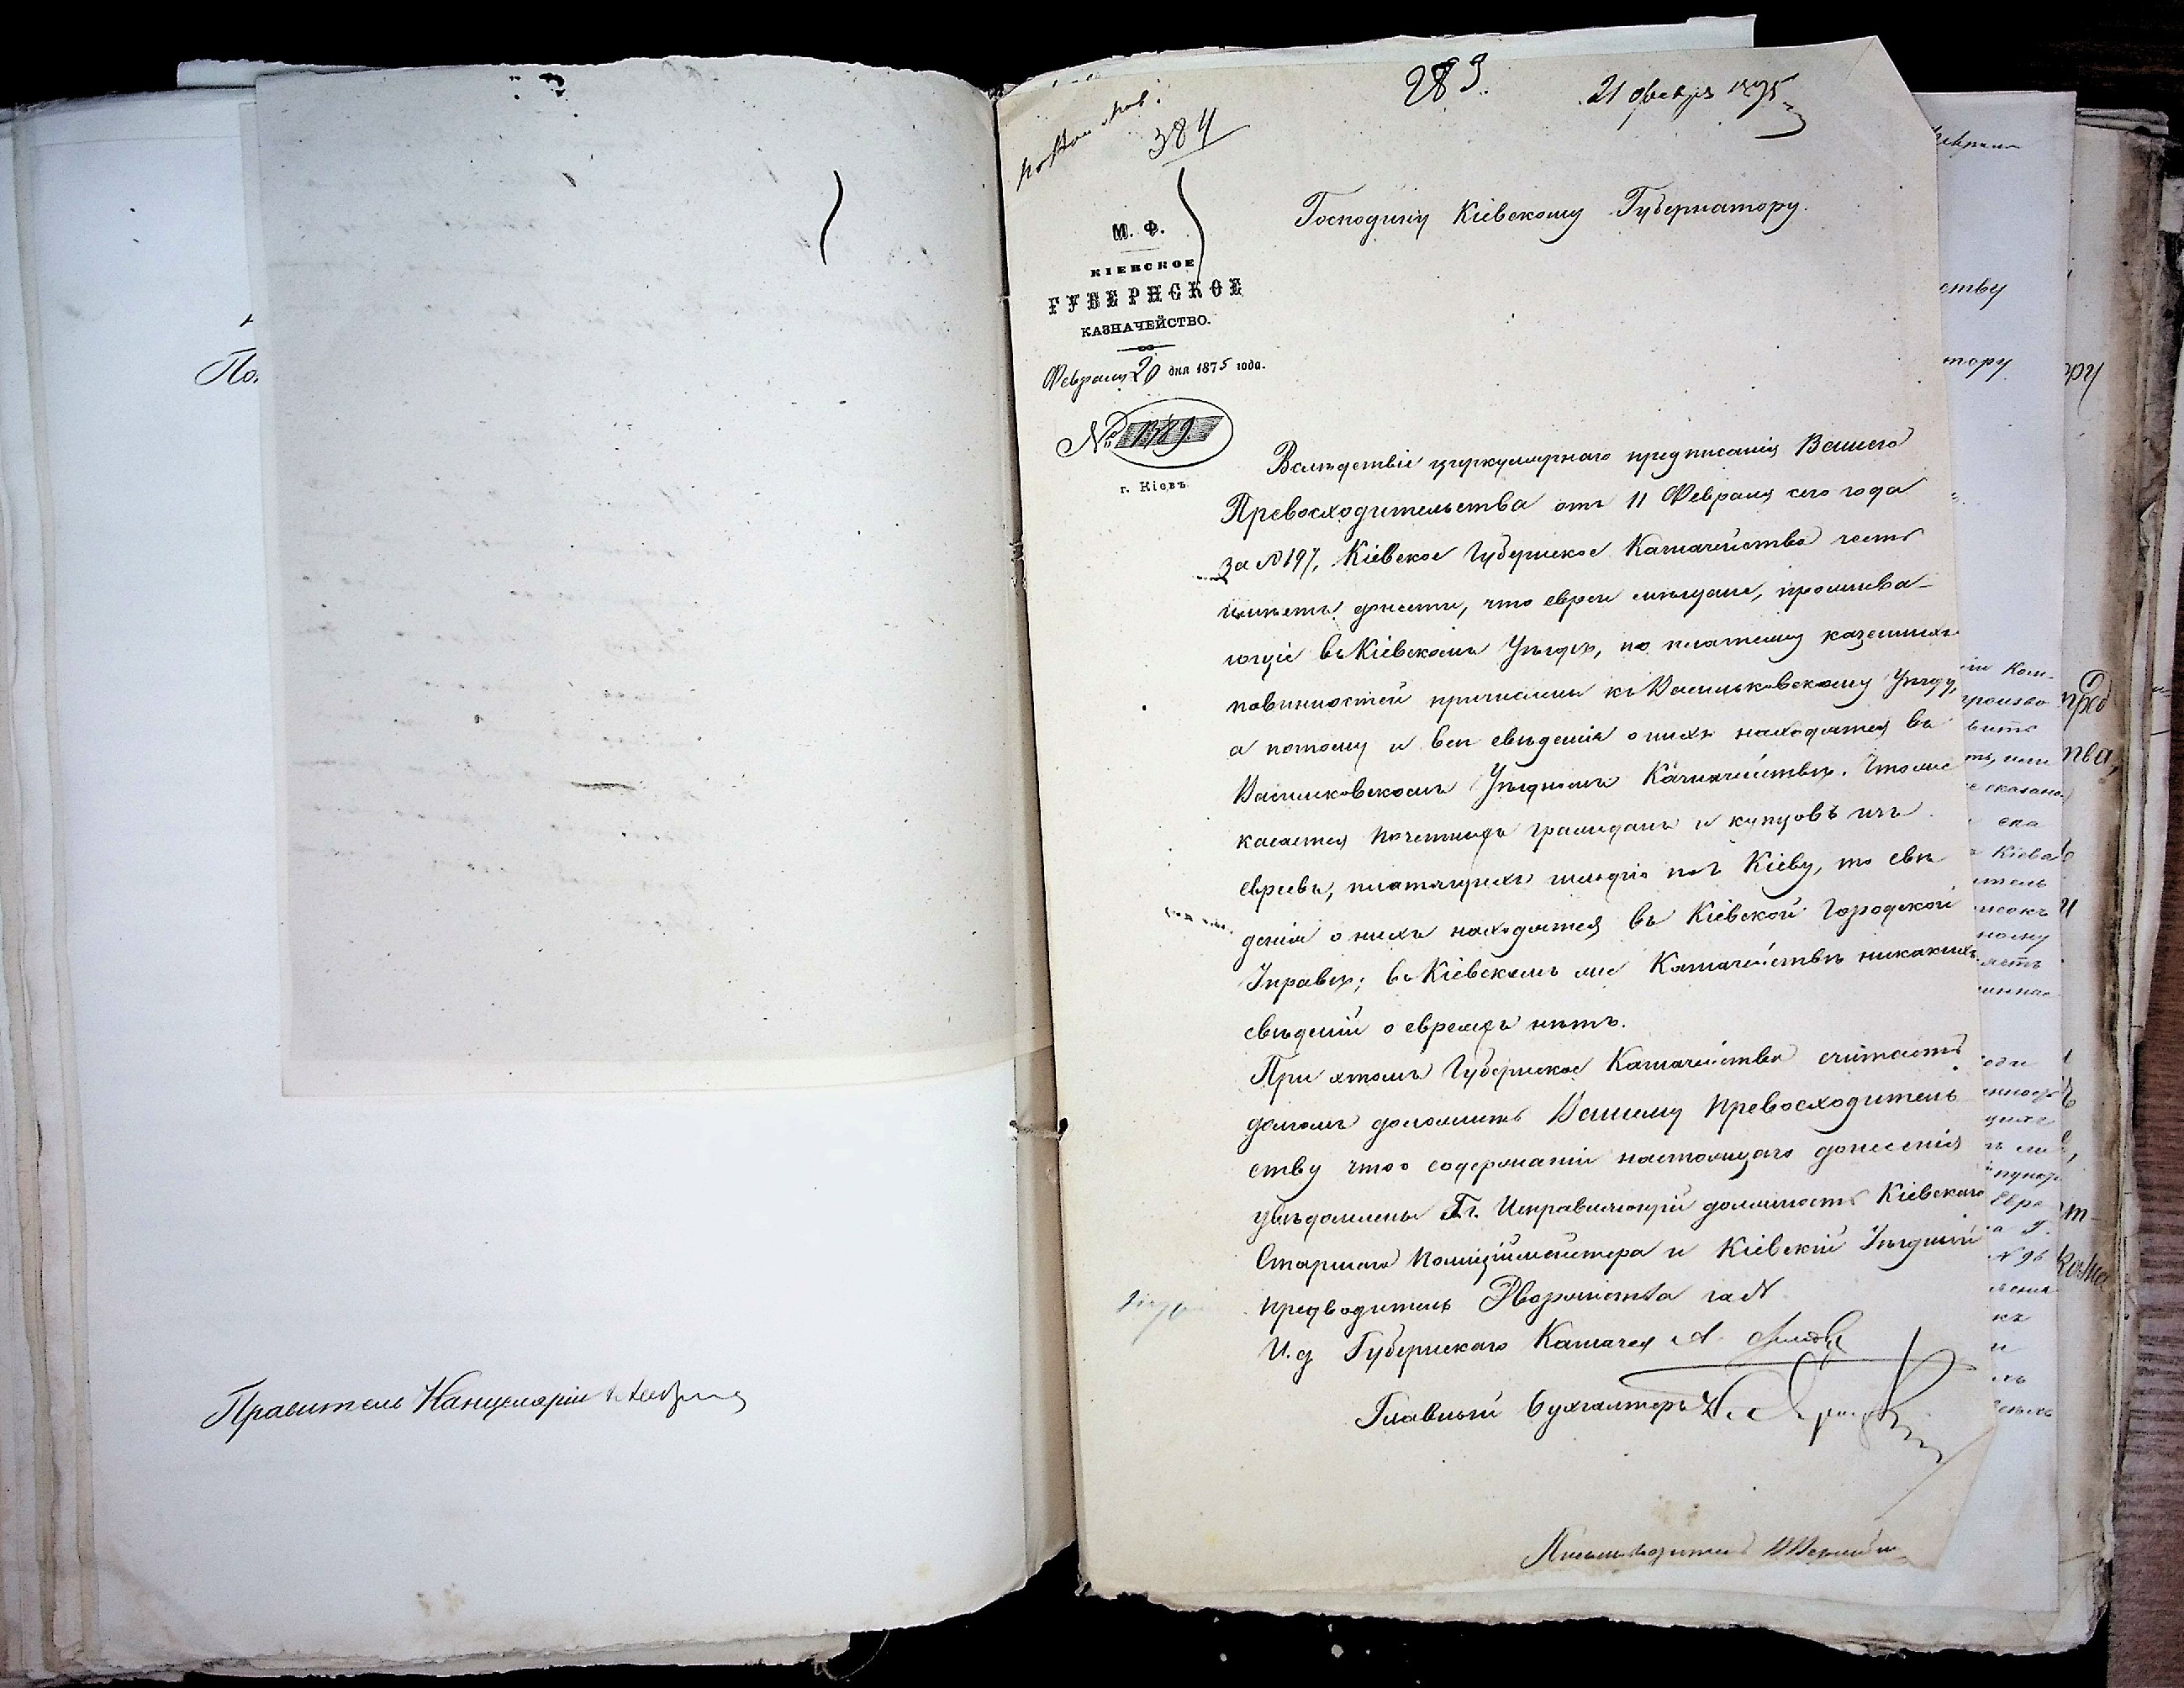 По
Правитель Канцеляріи
283.
21 февр 1875
384
М. Ф.
КІЕВСКОЕ
ГУБЕРНСКОЕ
КАЗНАЧЕЙСТВО.
Февраля 20 дня 1875 года.
№ 1389
г. Кіевъ
Господину Кіевскому Губернатору.
Вслѣдствіе циркулярнаго предписанія Вашего
Превосходительства отъ 11 Февраля сего года
за №197, Кіевское Губернское Казначейство честь
имѣетъ донести, что евреи мѣщане, прожива-
ющіе въ Кіевскомъ Уѣздѣ, по платежу казенныхъ
повинностей причислены къ Васильковскому Уѣзду,
а потому и всѣ свѣденія о нихъ находятся въ
Васильковскомъ Уѣздномъ Казначействѣ. Что же
касается почетныхъ гражданъ и купцовъ изъ
евреевъ, платящихъ гильдію по г. Кіеву, то свѣ
денія о нихъ находятся въ Кіевской Городской
Управѣ; въ Кіевскомъ же Казначействѣ никакихъ
свѣденій о евреяхъ нѣтъ.
При этомъ Губернское Казначейство считаетъ
долгомъ доложить Вашему Превосходитель
ству что о содержаніи настоящаго донесенія
увѣдомлены Гг. Исправляющій должность Кіевскаго
Старшаго Полиціймейстера и Кіевскій Уѣздный
Предводитель Дворянства за №
И. д Губернскаго Казначея А.
Главный Бухгалтеръ
Письмоводитель